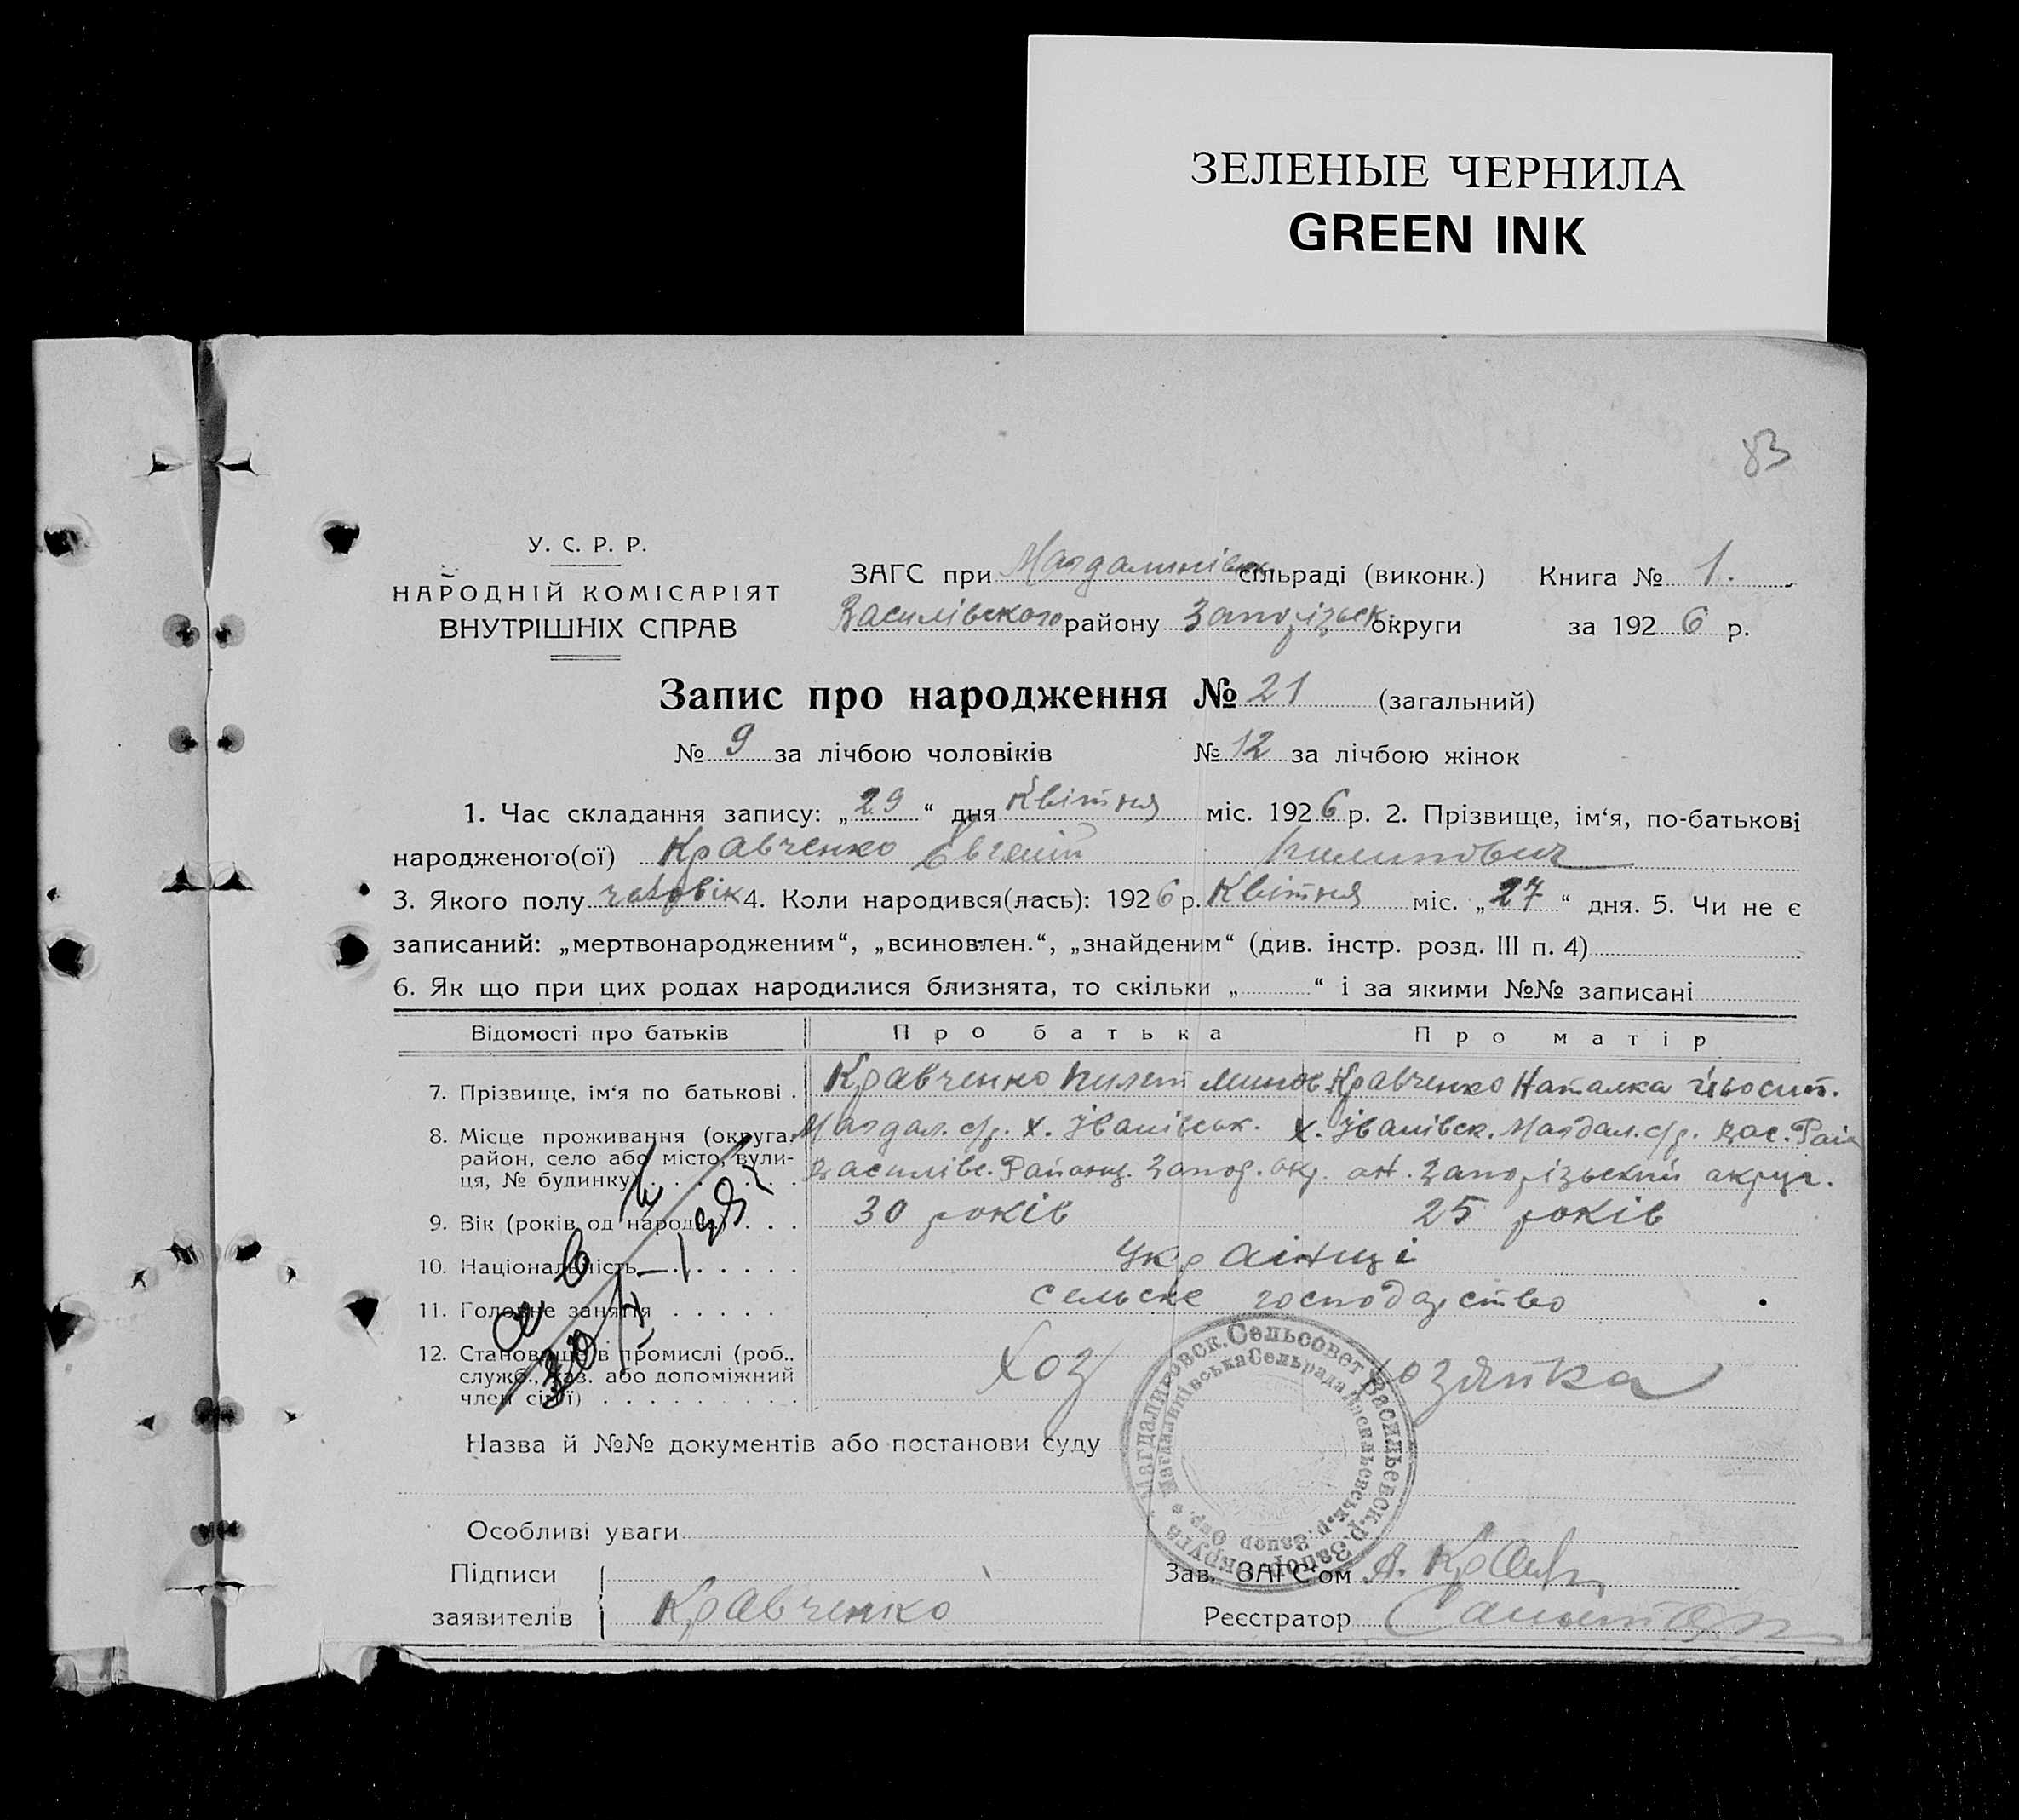 ЗЕЛЕНЫЕ ЧЕРНИЛА
GREEN INK
83
У. С. Р. Р.
НАРОДНІЙ КОМІСАРІЯТ
ВНУТРІШНІХ СПРАВ
ЗАГС при Магдалинівськ сільраді (виконк.) Книга № 1.
Василівского району Запорізьск. округи за 1926 р.
Запис про народження № 21 (загальний)
№ 9 за лічбою чоловіків № 12 за лічбою жінок
1. Час складання запису: „29“ дня Квітня міс. 1926 р. 2. Прізвище, ім‘я, по-батькові
народженого(ої) Кравченко Евгеній Пилипович
3. Якого полу чоловік 4. Коли народився(лась): 1926 р. Квітня міс. „27“ дня. 5. Чи не є
записаний: „мертвонародженим“, „всиновлен.“, „знайденим“ (див. інстр. розд. III п. 4)
6. Як що при цих родах народилися близнята, то скільки „ “ і за якими №№ записані
Відомості про батьків Про батька Про матір
7. Прізвище, ім‘я по батькові . Кравченко Пилип Минов Кравченко Наталка Йосип.
8. Місце проживання (округа, Магдал. с/р. х. Іванівськ. х. Іванівск. Магдал. с/р. Вас. Рай
район, село або місто, вули- Василівс. Району. Запор. окр. он. Запорізький округ.
ця, № будинку)
9. Вік (років од народж.) 30 років 25 років
10. Національність Українці
11. Головне заняття сельске господарство
12. Становище в промислі (роб., Хоз озяйка
служб., хаз. або допоміжний
член сім‘ї)
Магдалиновск. Сельсовет Васильевск. р. Запор. Округа
Магдалинівська Сельрада Васильевськ. р. Запор Окр.
Назва й №№ документів або постанови суду
Особливі уваги
Підписи
заявителів Кравченко
Зав. ЗАГС‘ом А.
Реєстратор